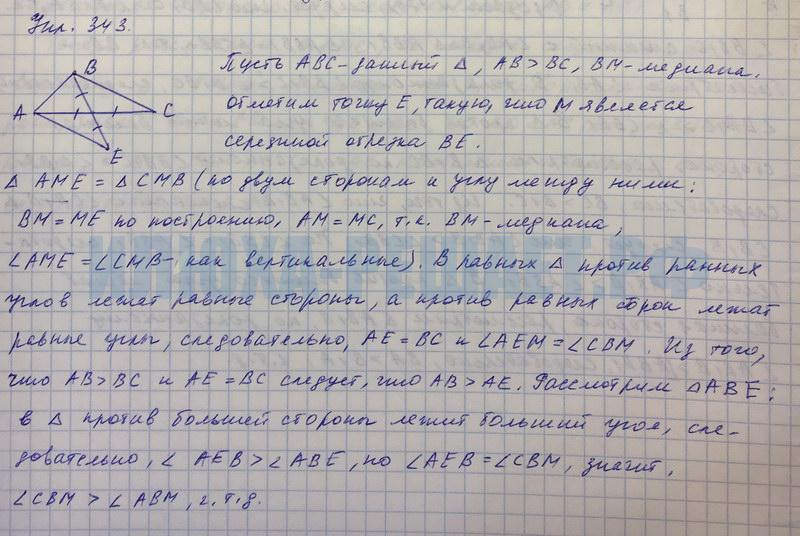 Упр. 343.
Пусть ABC - данный Δ, AB > BC, BM - медиана.
отметим точку E, такую, что M является
серединой отрезка BE.
B
A
C
E
Δ AME = Δ CMB (по двум сторонам и углу между ними:
BM = ME по построению, AM = MC, т.к. BM - медиана,
∠AME = ∠CMB - как вертикальные). В равных Δ против равных
углов лежат равные стороны, а против равных сторон лежат
равные углы, следовательно, AE = BC и ∠AEM = ∠CBM. Из того,
что AB > BC и AE = BC следует, что AB > AE. Рассмотрим ΔABE:
в Δ против большей стороны лежит больший угол, сле-
довательно, ∠ AEB > ∠ABE, но ∠AEB = ∠CBM, значит,
∠CBM > ∠ABM, ч.т.д.